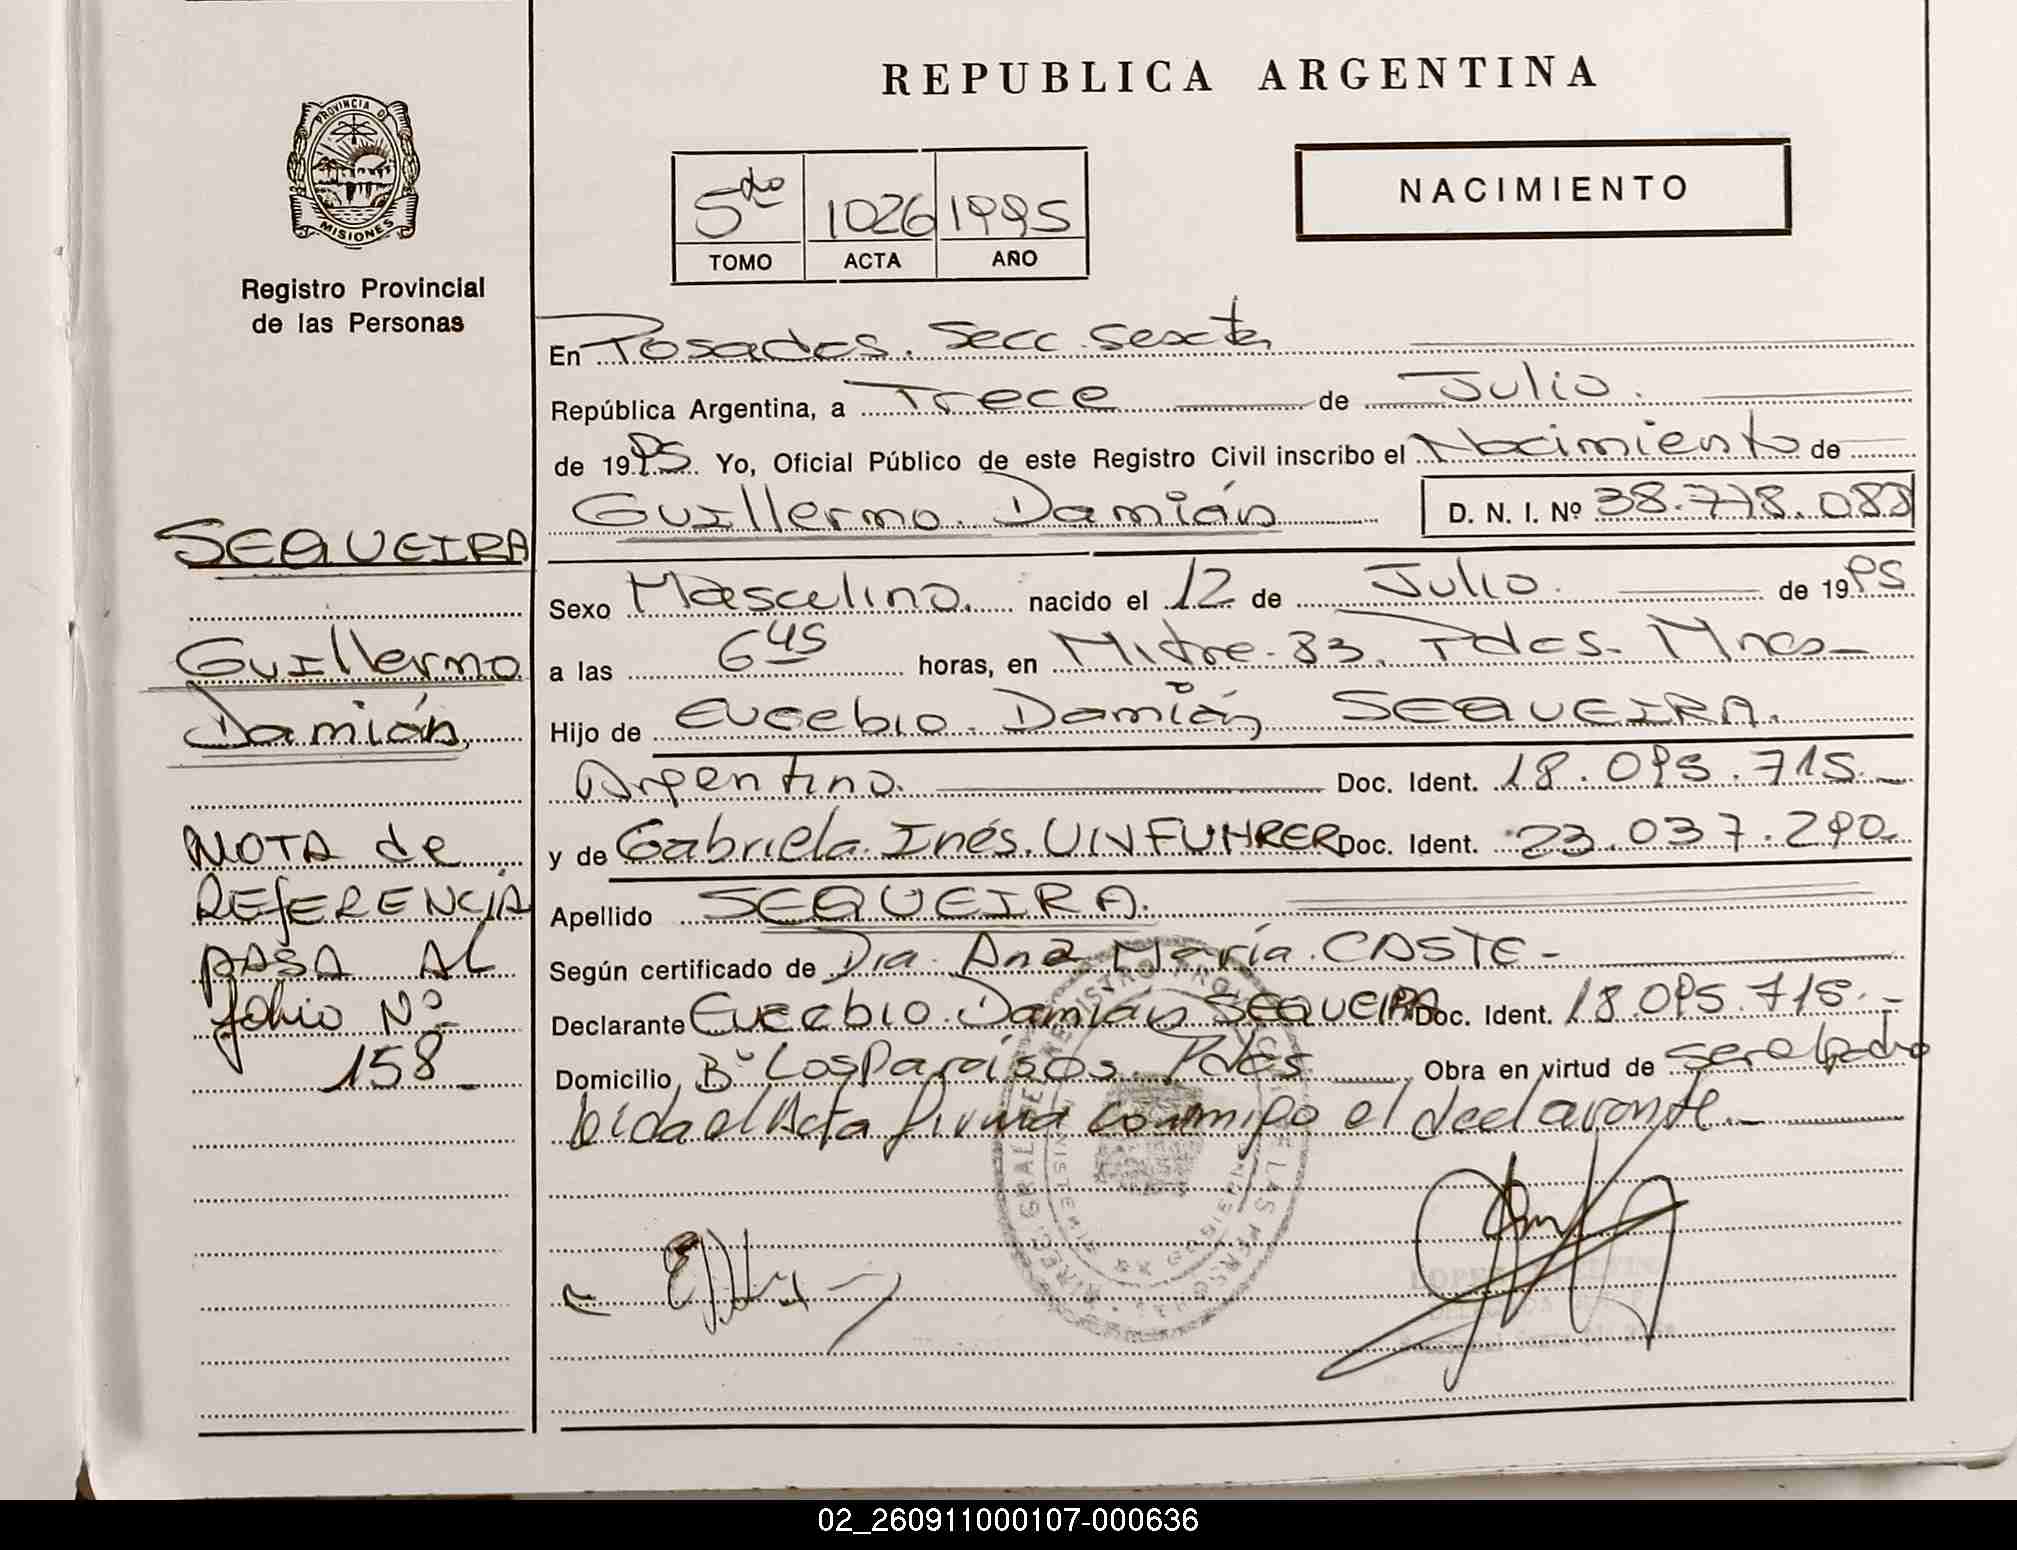 PROVINCIA DE
MISIONES
Registro Provincial
de las Personas
SEQUEIRA
Guillermo
Damián
NOTA de
REFERENCIA
PASA AL
folio Nº
158
REPUBLICA ARGENTINA
5to 1026 1995
TOMO ACTA AÑO
NACIMIENTO
En Posadas. Secc. Sexta
República Argentina, a Trece de Julio.
de 1995. Yo, Oficial Público de este Registro Civil inscribo el Nacimiento de
Guillermo Damián D. N. I. Nº 38.778.088
Sexo Masculino. nacido el 12 de Julio. de 1995
a las 6 45 horas, en Mitre 83. Pdas. Mnes
Hijo de Eusebio Damián SEQUEIRA.
Argentino. Doc. Ident. 18.095.715.
y de Gabriela Inés. UNFUHRER Doc. Ident. 23.037.290.
Apellido SEQUEIRA.
Según certificado de Dra. Ana María CASTE
Declarante Eusebio Damián SEQUEIRA Doc. Ident. 18.095.715.
Domicilio Bº Los Paraísos. Pdas Obra en virtud de
Leida el Acta firma conmigo el declarante.
02_260911000107-000636